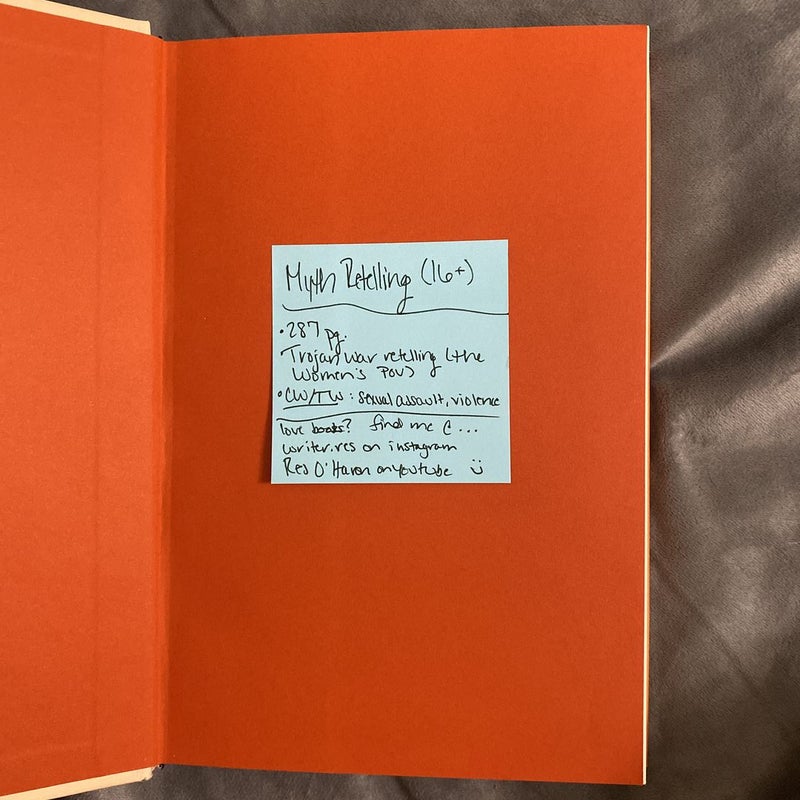 Myth Retelling (16+)
• 287 pg.
Trojan War retelling (the
Women's POV)
• CW/TW: sexual assault, violence
love books? find me @...
writer.res on instagram
Res O'Haron on youtube :)